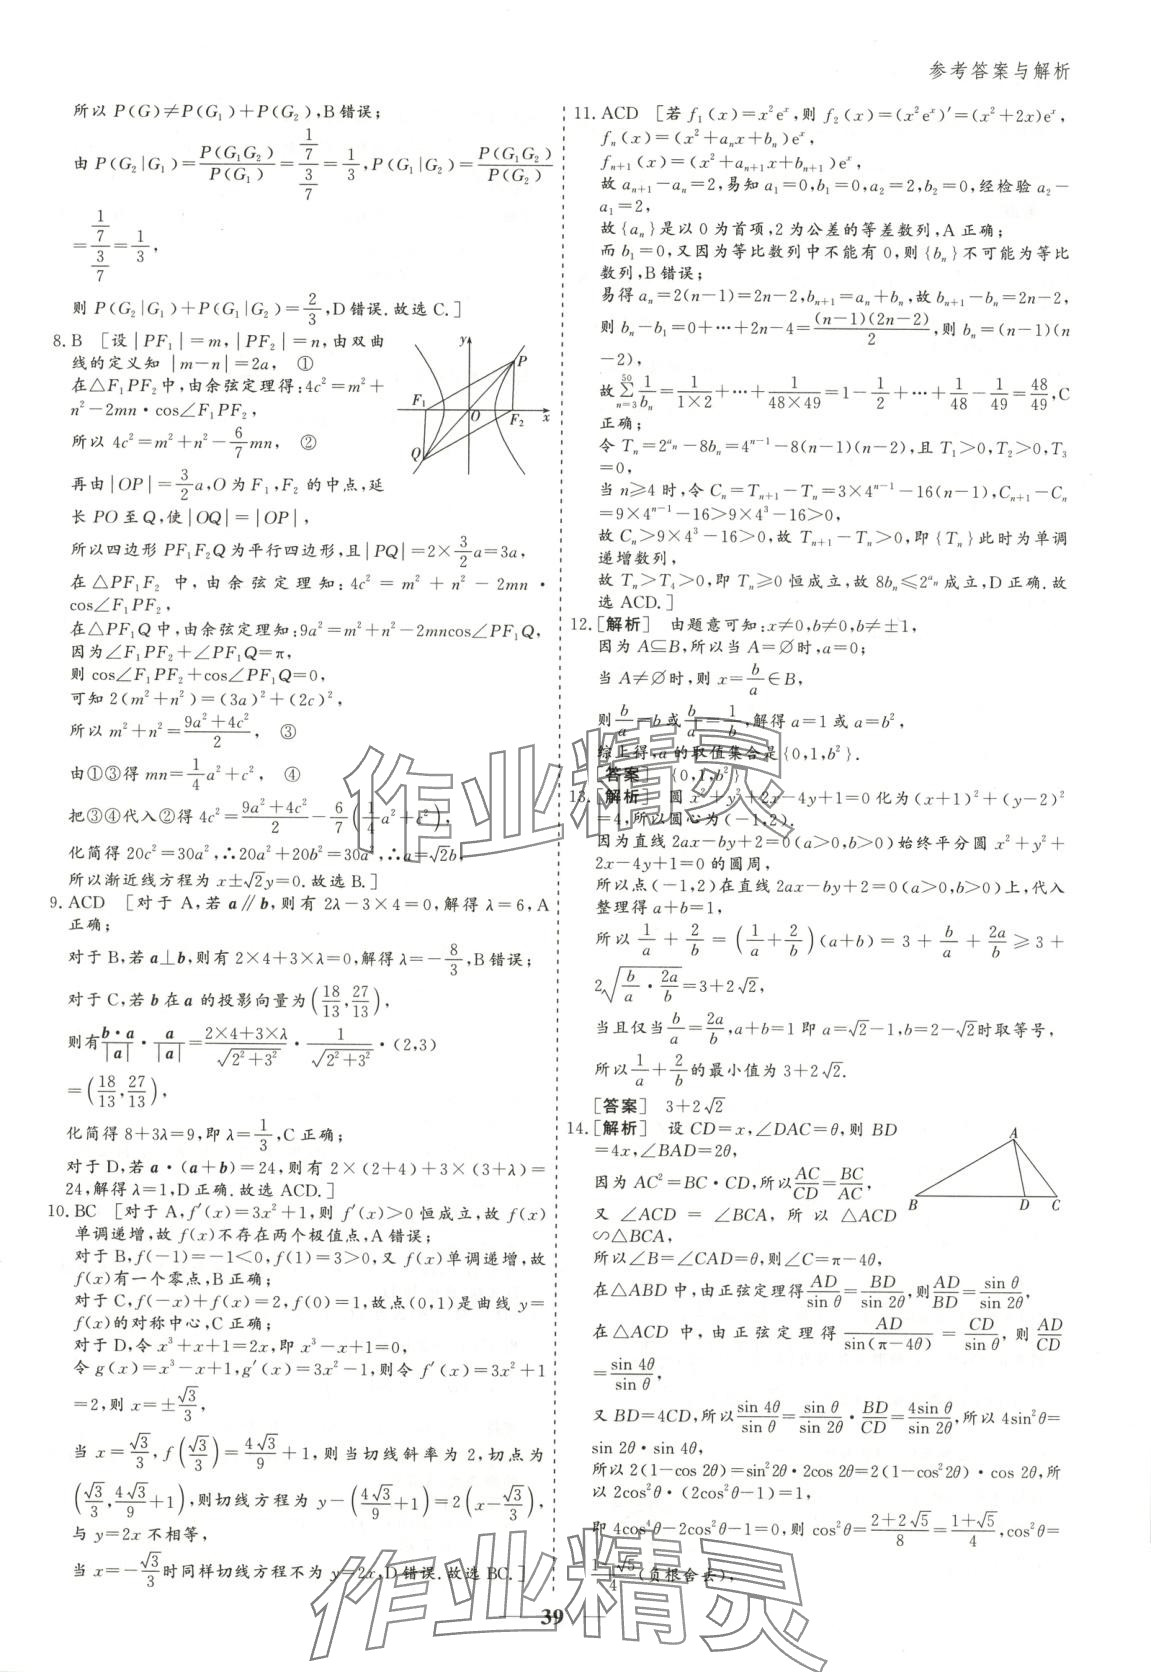 参考答案与解析
所以 P(G)≠P(G₁)+P(G₂),B错误;
由 P(G₂|G₁)=P(G₁G₂)/P(G₁)=(1/7)/(3/7)=1/3,P(G₁|G₂)=P(G₁G₂)/P(G₂)
=(1/7)/(3/7)=1/3,
则 P(G₂|G₁)+P(G₁|G₂)=2/3,D错误.故选C.]
8. B [设|PF₁|=m,|PF₂|=n,由双曲
线的定义知 |m-n|=2a, ①
在△F₁PF₂中,由余弦定理得:4c²=m²+
n²-2mn·cos∠F₁PF₂,
所以 4c²=m²+n²-6/7mn, ②
再由|OP|=3/2a,O为F₁,F₂ 的中点,延
长 PO 至 Q,使|OQ|=|OP|,
y
P
F₁
O
F₂
x
Q
所以四边形 PF₁F₂Q 为平行四边形,且|PQ|=2×3/2a=3a,
在△PF₁F₂ 中,由余弦定理知:4c²=m²+n²-2mn·
cos∠F₁PF₂,
在△PF₁Q中,由余弦定理知:9a²=m²+n²-2mncos∠PF₁Q,
因为∠F₁PF₂+∠PF₁Q=π,
则 cos∠F₁PF₂+cos∠PF₁Q=0,
可知 2(m²+n²)=(3a)²+(2c)²,
所以 m²+n²=(9a²+4c²)/2, ③
由①③得 mn=1/4a²+c², ④
把③④代入②得 4c²=(9a²+4c²)/2-6/7(1/4a²+c²),
化简得 20c²=30a²,∴20a²+20b²=30a²,∴a=√2b,
所以渐近线方程为 x±√2y=0.故选B.]
9. ACD [对于 A,若 a∥b,则有 2λ-3×4=0,解得 λ=6,A
正确;
对于 B,若 a⊥b,则有 2×4+3×λ=0,解得 λ=-8/3,B错误;
对于 C,若 b 在 a 的投影向量为(18/13,27/13),
则有b·a/|a|·a/|a|=(2×4+3×λ)/√(2²+3²)·1/√(2²+3²)·(2,3)
=(18/13,27/13),
化简得 8+3λ=9,即 λ=1/3,C正确;
对于 D,若 a·(a+b)=24,则有 2×(2+4)+3×(3+λ)=
24,解得 λ=1,D正确.故选 ACD.]
10. BC [对于 A,f′(x)=3x²+1,则 f′(x)>0 恒成立,故 f(x)
单调递增,故 f(x)不存在两个极值点,A错误;
对于 B,f(-1)=-1<0,f(1)=3>0,又 f(x)单调递增,故
f(x)有一个零点,B正确;
对于 C,f(-x)+f(x)=2,f(0)=1,故点(0,1)是曲线 y=
f(x)的对称中心,C正确;
对于 D,令 x³+x+1=2x,即 x³-x+1=0,
令 g(x)=x³-x+1,g′(x)=3x²-1,则令 f′(x)=3x²+1
=2,则 x=±√3/3,
当 x=√3/3,f(√3/3)=4√3/9+1,则当切线斜率为 2,切点为
(√3/3,4√3/9+1),则切线方程为 y-(4√3/9+1)=2(x-√3/3),
与 y=2x 不相等,
当 x=-√3/3时同样切线方程不为 y=2x,D错误.故选 BC.]
11. ACD [若 f₁(x)=x²eˣ,则 f₂(x)=(x²eˣ)′=(x²+2x)eˣ,
fₙ(x)=(x²+aₙx+bₙ)eˣ,
fₙ₊₁(x)=(x²+aₙ₊₁x+bₙ₊₁)eˣ,
故 aₙ₊₁-aₙ=2,易知 a₁=0,b₁=0,a₂=2,b₂=0,经检验 a₂-
a₁=2,
故{aₙ}是以 0 为首项,2 为公差的等差数列,A正确;
而 b₁=0,又因为等比数列中不能有 0,则{bₙ}不可能为等比
数列,B错误;
易得 aₙ=2(n-1)=2n-2,bₙ₊₁=aₙ+bₙ,故 bₙ₊₁-bₙ=2n-2,
则 bₙ-b₁=0+···+2n-4=(n-1)(2n-2)/2,则 bₙ=(n-1)(n
-2),
故 ∑(n=3→50) 1/bₙ=1/(1×2)+···+1/(48×49)=1-1/2+···+1/48-1/49=48/49,C
正确;
令 Tₙ=2^aₙ-8bₙ=4ⁿ⁻¹-8(n-1)(n-2),且 T₁>0,T₂>0,T₃
=0,
当 n≥4 时,令 Cₙ=Tₙ₊₁-Tₙ=3×4ⁿ⁻¹-16(n-1),Cₙ₊₁-Cₙ
=9×4ⁿ⁻¹-16>9×4³-16>0,
故 Cₙ>9×4³-16>0,故 Tₙ₊₁-Tₙ>0,即{Tₙ}此时为单调
递增数列,
故 Tₙ>T₄>0,即 Tₙ≥0 恒成立,故 8bₙ≤2^aₙ 成立,D正确.故
选 ACD.]
12. [解析] 由题意可知:x≠0,b≠0,b≠±1,
因为 A⊆B,所以当 A=∅时,a=0;
当 A≠∅时,则 x=b/a∈B,
则b/a=b 或b/a=1/b,解得 a=1 或 a=b²,
综上得,a 的取值集合是{0,1,b²}.
[答案] {0,1,b²}
13. [解析] 圆 x²+y²+2x-4y+1=0 化为(x+1)²+(y-2)²
=4,所以圆心为(-1,2).
因为直线 2ax-by+2=0(a>0,b>0)始终平分圆 x²+y²+
2x-4y+1=0 的圆周,
所以点(-1,2)在直线 2ax-by+2=0(a>0,b>0)上,代入
整理得 a+b=1,
所以 1/a+2/b=(1/a+2/b)(a+b)=3+b/a+2a/b≥3+
2√(b/a·2a/b)=3+2√2,
当且仅当b/a=2a/b,a+b=1 即 a=√2-1,b=2-√2时取等号,
所以1/a+2/b的最小值为 3+2√2.
[答案] 3+2√2
14. [解析] 设 CD=x,∠DAC=θ,则 BD
=4x,∠BAD=2θ,
因为 AC²=BC·CD,所以AC/CD=BC/AC,
又 ∠ACD=∠BCA,所以 △ACD
∽△BCA,
A
B
D
C
所以∠B=∠CAD=θ,则∠C=π-4θ,
在△ABD 中,由正弦定理得AD/sin θ=BD/sin 2θ,则AD/BD=sin θ/sin 2θ,
在△ACD 中,由正弦定理得 AD/sin(π-4θ)=CD/sin θ,则AD/CD
=sin 4θ/sin θ,
又 BD=4CD,所以sin 4θ/sin θ=sin θ/sin 2θ·BD/CD=4sin θ/sin 2θ,所以 4sin²θ=
sin 2θ·sin 4θ,
所以 2(1-cos 2θ)=sin²2θ·2cos 2θ=2(1-cos²2θ)·cos 2θ,所
以 2cos²θ·(2cos²θ-1)=1,
即 4cos⁴θ-2cos²θ-1=0,则 cos²θ=(2+2√5)/8=(1+√5)/4,cos²θ=
(1-√5)/4(负根舍去),
39
作业精灵
作业精灵